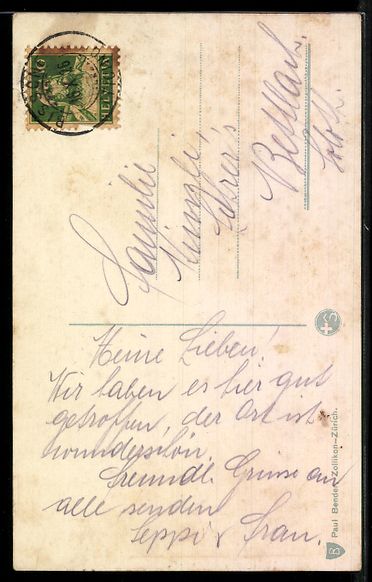 HELVETIA
10
Familie
Lehrer's
Bettlach.
Soloth.
Meine Lieben!
Wir haben es hier gut
getroffen, der Ort ist
wunderschön.
Freundl. Grüsse an
alle senden
Seppi & Frau.
Paul Bender, Zollikon–Zürich.
B